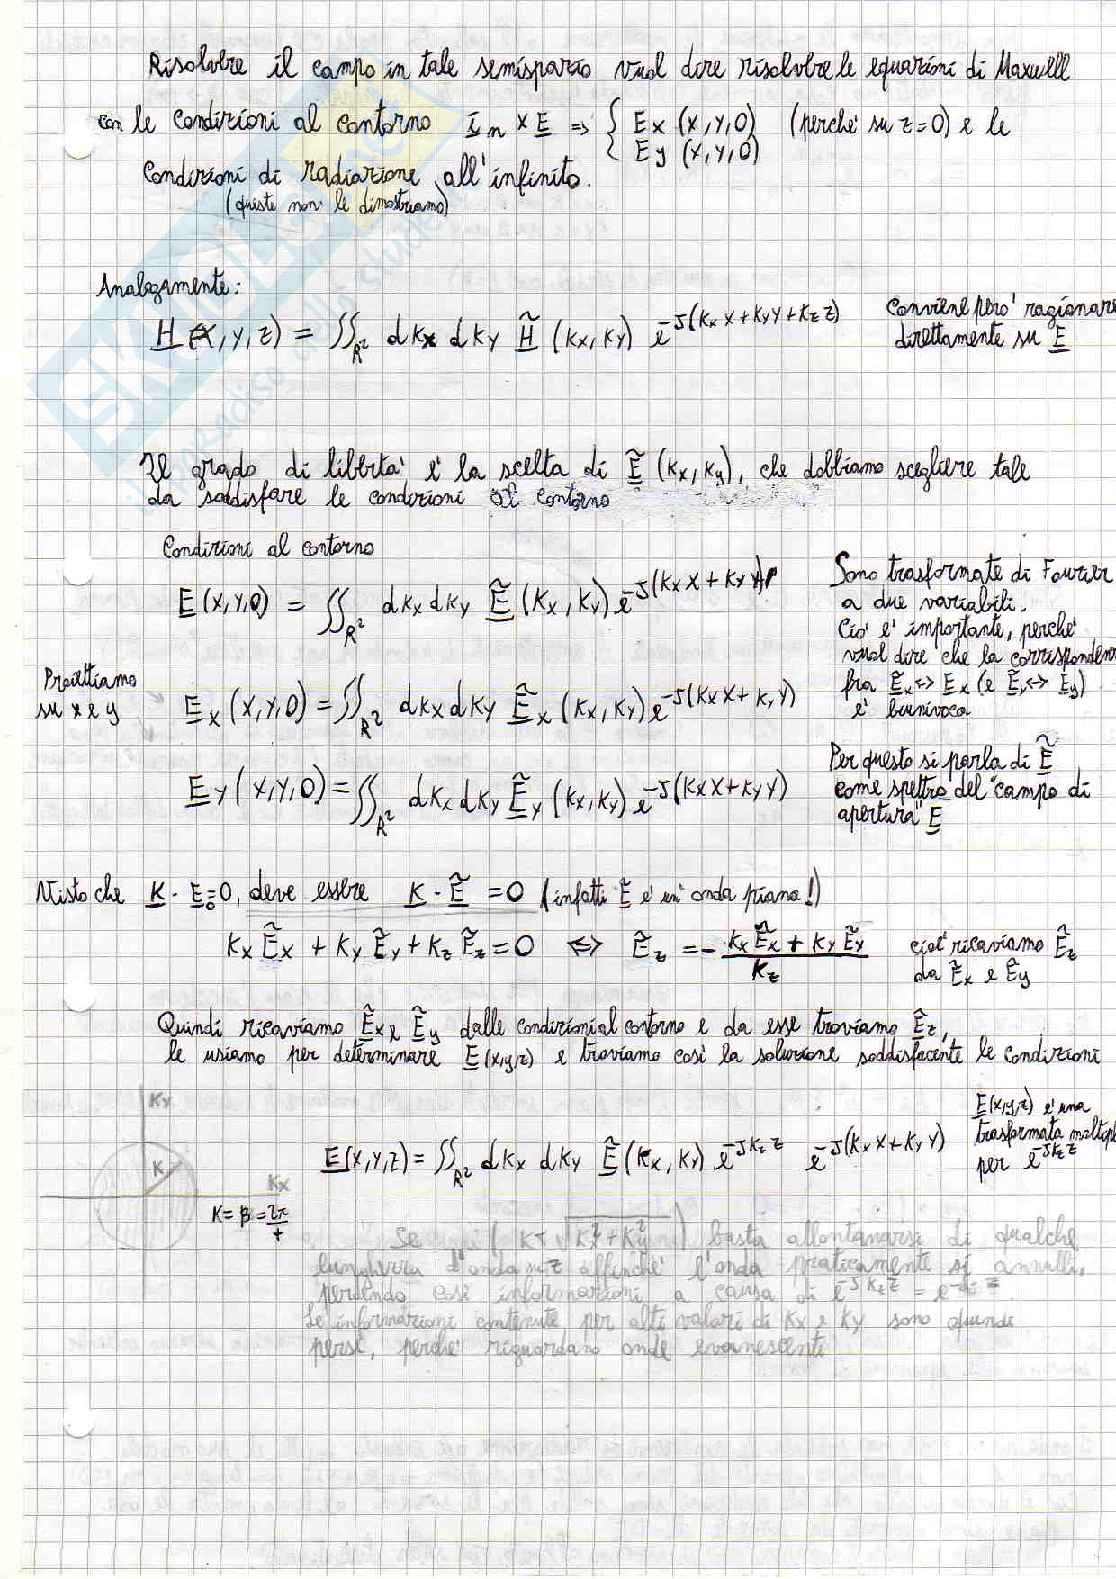 Risolvere il campo in tale semispazio vuol dire risolvere le equazioni di Maxwell
con le condizioni al contorno i̲n × E̲ => { Ex (x,y,0) (perché su z=0) e le
Ey (x,y,0)
condizioni di radiazione all'infinito.
(queste non le dimostriamo)
Analogamente:
H̲(x,y,z) = ∬R² dkx dky H̲̃ (kx,ky) e^-J(kx x+ky y+kz z)
Conviene però ragionare
direttamente su E̲
Il grado di libertà è la scelta di Ẽ̲ (kx,ky), che dobbiamo scegliere tale
da soddisfare le condizioni al contorno
Condizioni al contorno
E̲(x,y,0) = ∬R² dkx dky Ẽ̲ (kx,ky) e^-J(kx x + ky y)
Sono trasformate di Fourier
a due variabili.
Ciò è importante, perché
vuol dire che la corrispondenza
fra Ẽx <=> Ex (e Ẽy <=> Ey)
è biunivoca
Proiettiamo
su x e y
E̲x (x,y,0) = ∬R² dkx dky Ẽ̲x (kx,ky) e^-J(kx x + ky y)
E̲y (x,y,0) = ∬R² dkx dky Ẽ̲y (kx,ky) e^-J(kx x + ky y)
Per questo si parla di Ẽ̲
come spettro del "campo di
apertura" E̲
Visto che K̲ · E̲0=0, deve essere K̲ · Ẽ̲ = 0 (infatti Ẽ̲ è un'onda piana!)
kx Ẽx + ky Ẽy + kz Ẽz = 0 <=> Ẽz = - (kx Ẽx + ky Ẽy) / kz
cioè ricaviamo Ẽz
da Ẽx e Ẽy
Quindi ricaviamo Ẽx e Ẽy dalle condizioni al contorno e da esse troviamo Ẽz,
le usiamo per determinare E̲(x,y,z) e troviamo così la soluzione soddisfacente le condizioni
Ky
K
Kx
K = β = 2π/λ
E̲(x,y,z) = ∬R² dkx dky Ẽ̲ (kx,ky) e^-Jkz z e^-J(kx x + ky y)
E̲(x,y,z) è una
trasformata moltipl
per e^-Jkz z
Se (K < √(kx²+ky²)) basta allontanarsi di qualche
lunghezza d'onda su z affinché l'onda praticamente si annulli,
perdendo così informazioni a causa di e^-Jkz z = e^-αz z
Le informazioni contenute per alti valori di Kx e Ky sono quindi
perse, perché riguardano onde evanescenti